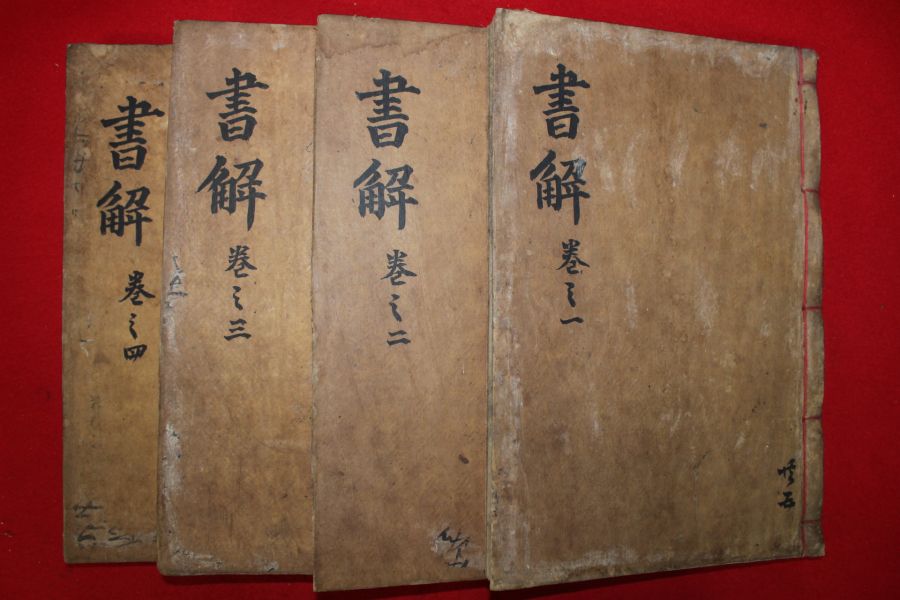 書解
卷之一
書解
卷之二
書解
卷之三
書解
卷之四